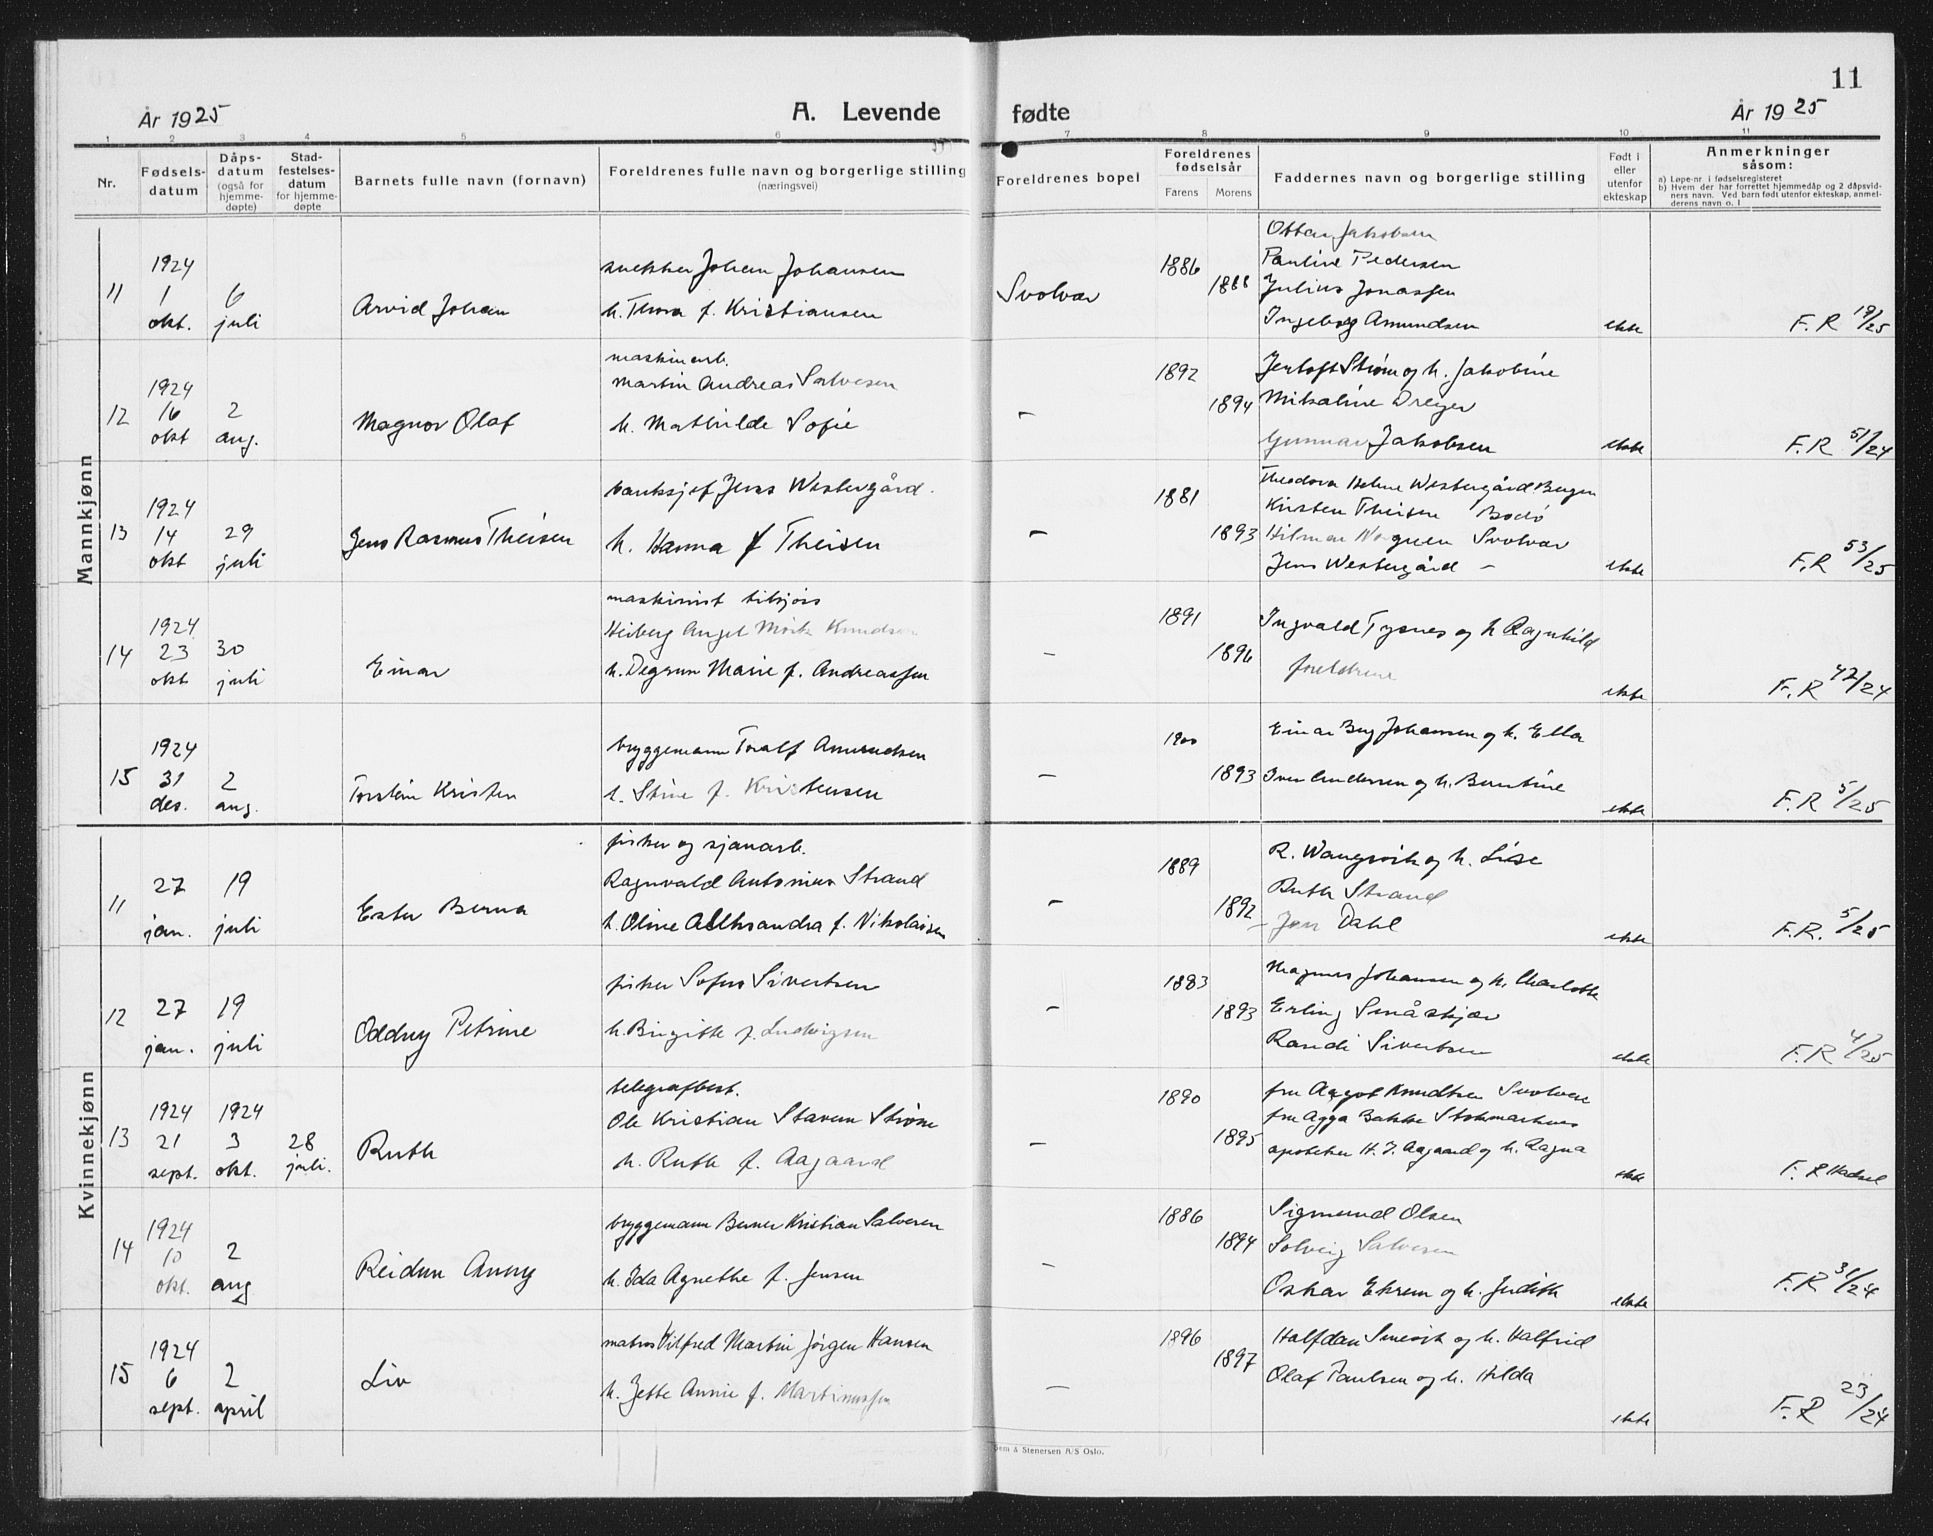 11
År 1925
A. Levende
fødte
År 1925
1 2 3 4 5 6 7 8 9 10 11
Nr.
Fødsels-
datum
Dåps-
datum
(også for
hjemme-
døpte)
Stad-
festelses-
datum
for hjemme-
døpte
Barnets fulle navn (fornavn)
Foreldrenes fulle navn og borgerlige stilling
(næringsvei)
Foreldrenes bopel
Foreldrenes
fødselsår
Farens Morens
Faddernes navn og borgerlige stilling
Født i
eller
utenfor
ekteskap
Anmerkninger
såsom:
a) Løpe-nr. i fødselsregisteret
b) Hvem der har forrettet hjemmedåp og 2 dåpsvid-
ners navn. Ved barn født utenfor ekteskap, anmel-
derens navn o. l
Mannkjønn
11
1924
1
okt.
6
juli
Arvid Johan
snekker Johan Johansen
h. Thora f. Kristiansen
Svolvær
1886
1888
Ottar Jakobsen
Pauline Pedersen
Julius Jonassen
Ingeborg Amundsen
ekte
F.R 19/25
12
1924
16
okt
2
aug.
Magnor Olaf
maskinarb.
Martin Andreas Salvesen
h. Mathilde Sofie
—
1892
1894
Jentoft Strøm og h. Jakobine
Mikaline Dreyer
Gunnar Jakobsen
ekte
F.R 51/24
13
1924
14
okt
29
juli
Jens Rasmus Theisen
banksjef Jens Westergård.
h. Hanna f Theisen
—
1881
1893
Theodora Helene Westergård Bergen
Kirsten Theisen Bodø
Hilmar Svolvær
Jens Westergård —
ekte
F.R 53/25
14
1924
23
okt
30
juli
Einar
maskinist tilsjøs
Heiberg Angel Mörk Knudsen
h. Dagrun Marie f. Andreassen
—
1891
1896
Ingvald Tysnes og h Ragnhild
foreldrene
ekte
F.R 42/24
15
1924
31
des.
2
aug.
Torstein Kristen
bryggemann Toralf Amundsen
h. Stine f. Kristensen
—
1900
1893
Einar Berg Johansen og h. Ella
Iver Andersen og h. Berntine
ekte
F.R 5/25
Kvinnekjønn
11
27
jan.
19
juli
Ester Berna
fisker og sjauarb.
Ragnvald Antonius Strand
h. Oline Alleksandra f. Nikolaisen
—
1889
1892
R. Wangsvik og h. Lise
Ruth Strand
Jon Dahl
ekte
F.R. 5/25
12
27
jan.
19
juli
Oddny Petrine
fisker Sofus Sivertsen
h. Birgitte f. Ludvigsen
—
1883
1893
Magnus Johansen og h. Charlotte
Erling Småskjær
Randi Sivertsen
ekte
F.R 4/25
13
1924
21
sept.
1924
3
okt.
28
juli.
Ruth
telegrafbest.
Ole Kristian Stavem Strøm
h. Ruth f. Aagaard
—
1890
1895
fru Aagot Knudtsen Svolvær
fru Agga Bakke Stokmarknes
apoteker H. J. Aagaard og h. Ragna
ekte
F.R Hadsel
14
1924
10
okt.
2
aug
Reidun Anny
bryggemann Berner Kristian Salvesen
h. Ida Agnethe f. Jensen
—
1886
1894
Sigmund Olsen
Solveig Salvesen
Oskar Ekrem og h. Judith
ekte
F.R 31/24
15
1924
6
sept.
2
april
Liv
matros Vilfred Martin Jørgen Hansen
h. Jette Annie f. Martinussen
—
1896
1897
Halfdan Smevik og h. Halfrid
Olaf Paulsen og h. Hilda
ekte
F.R 23/24
Sem & Stenersen A/S Oslo.